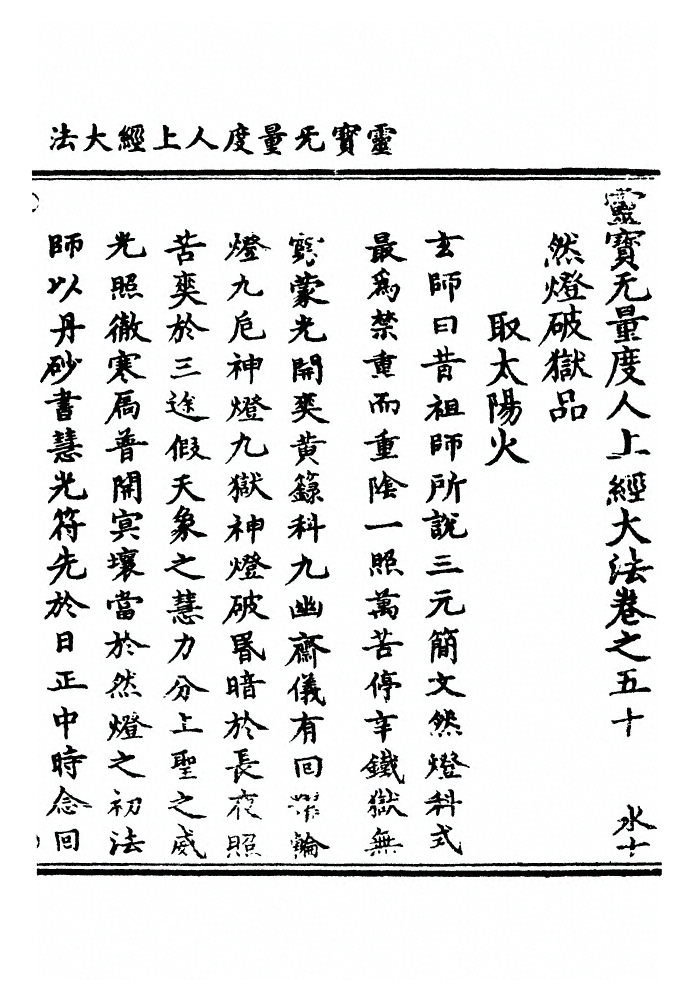 靈寶无量度人上經大法
靈寶无量度人上經大法卷之五十 水十
然燈破獄品
取太陽火
玄師曰昔祖師所說三元簡文然燈科式
最爲禁重而重陰一照萬苦停辛鐵獄無
蒙光開爽黃籙科九幽齋儀有回輪
燈九巵神燈九獄神燈破昬暗於長夜照
苦爽於三途假天象之慧力分上聖之威
光照徹寒扃普開冥壤當於然燈之初法
師以丹砂書慧光符先於日正中時念回